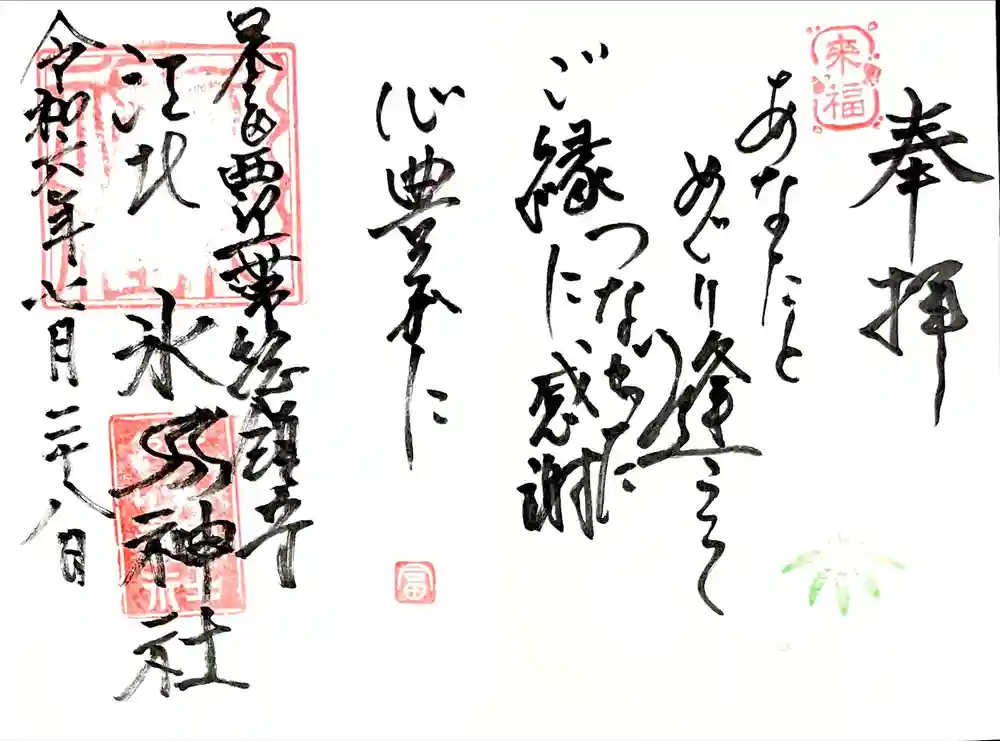 奉拝
来福
あなたと
めぐり逢えて
つながった
ご縁に感謝
心豊かに
富
総鎮守
江北氷川神社
令和六年七月二十八日